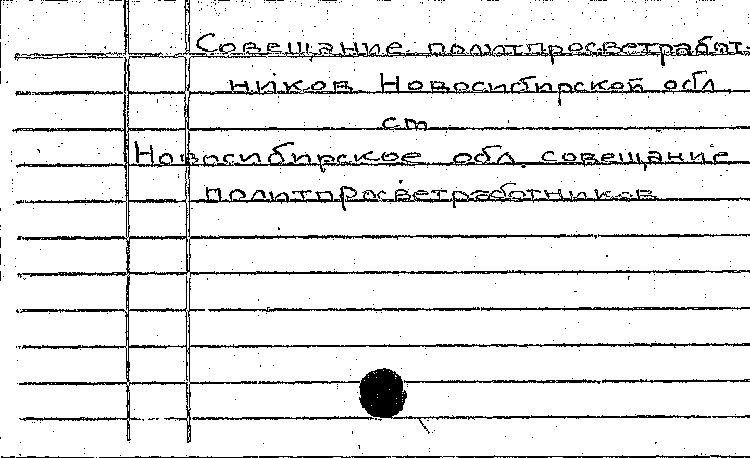 Совещание политпросветработ-
ников Новосибирской обл.
см
Новосибирское обл. совещание
политпросветработников